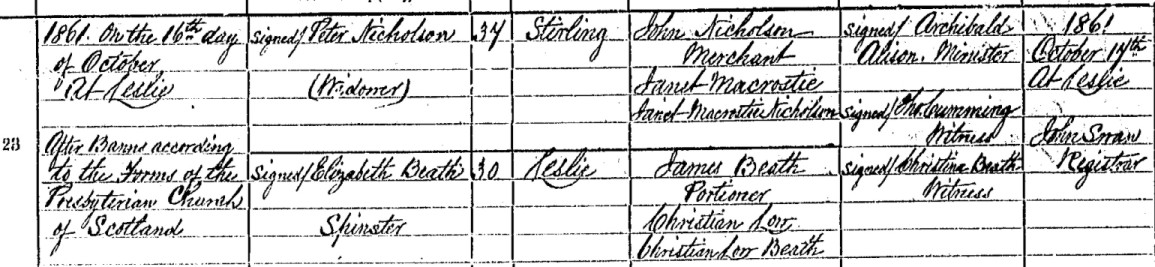 23
1861. On the 16th day
of October
At Leslie
After Banns according
to the Forms of the
Presbyterian Church
of Scotland
signed/ Peter Nicholson
(Widower)
signed/ Elizabeth Beath
Spinster
34
30
Stirling
Leslie
John Nicholson
Merchant
Janet Macrostie
Janet Macrostie Nicholson
James Beath
Portioner
Christian Low
Christian Low Beath
signed/ Archibald
Alison. Minister
signed/ Tho. Cumming
Witness
signed/ Christina Beath
Witness
1861
October 17th
At Leslie
John
Registrar